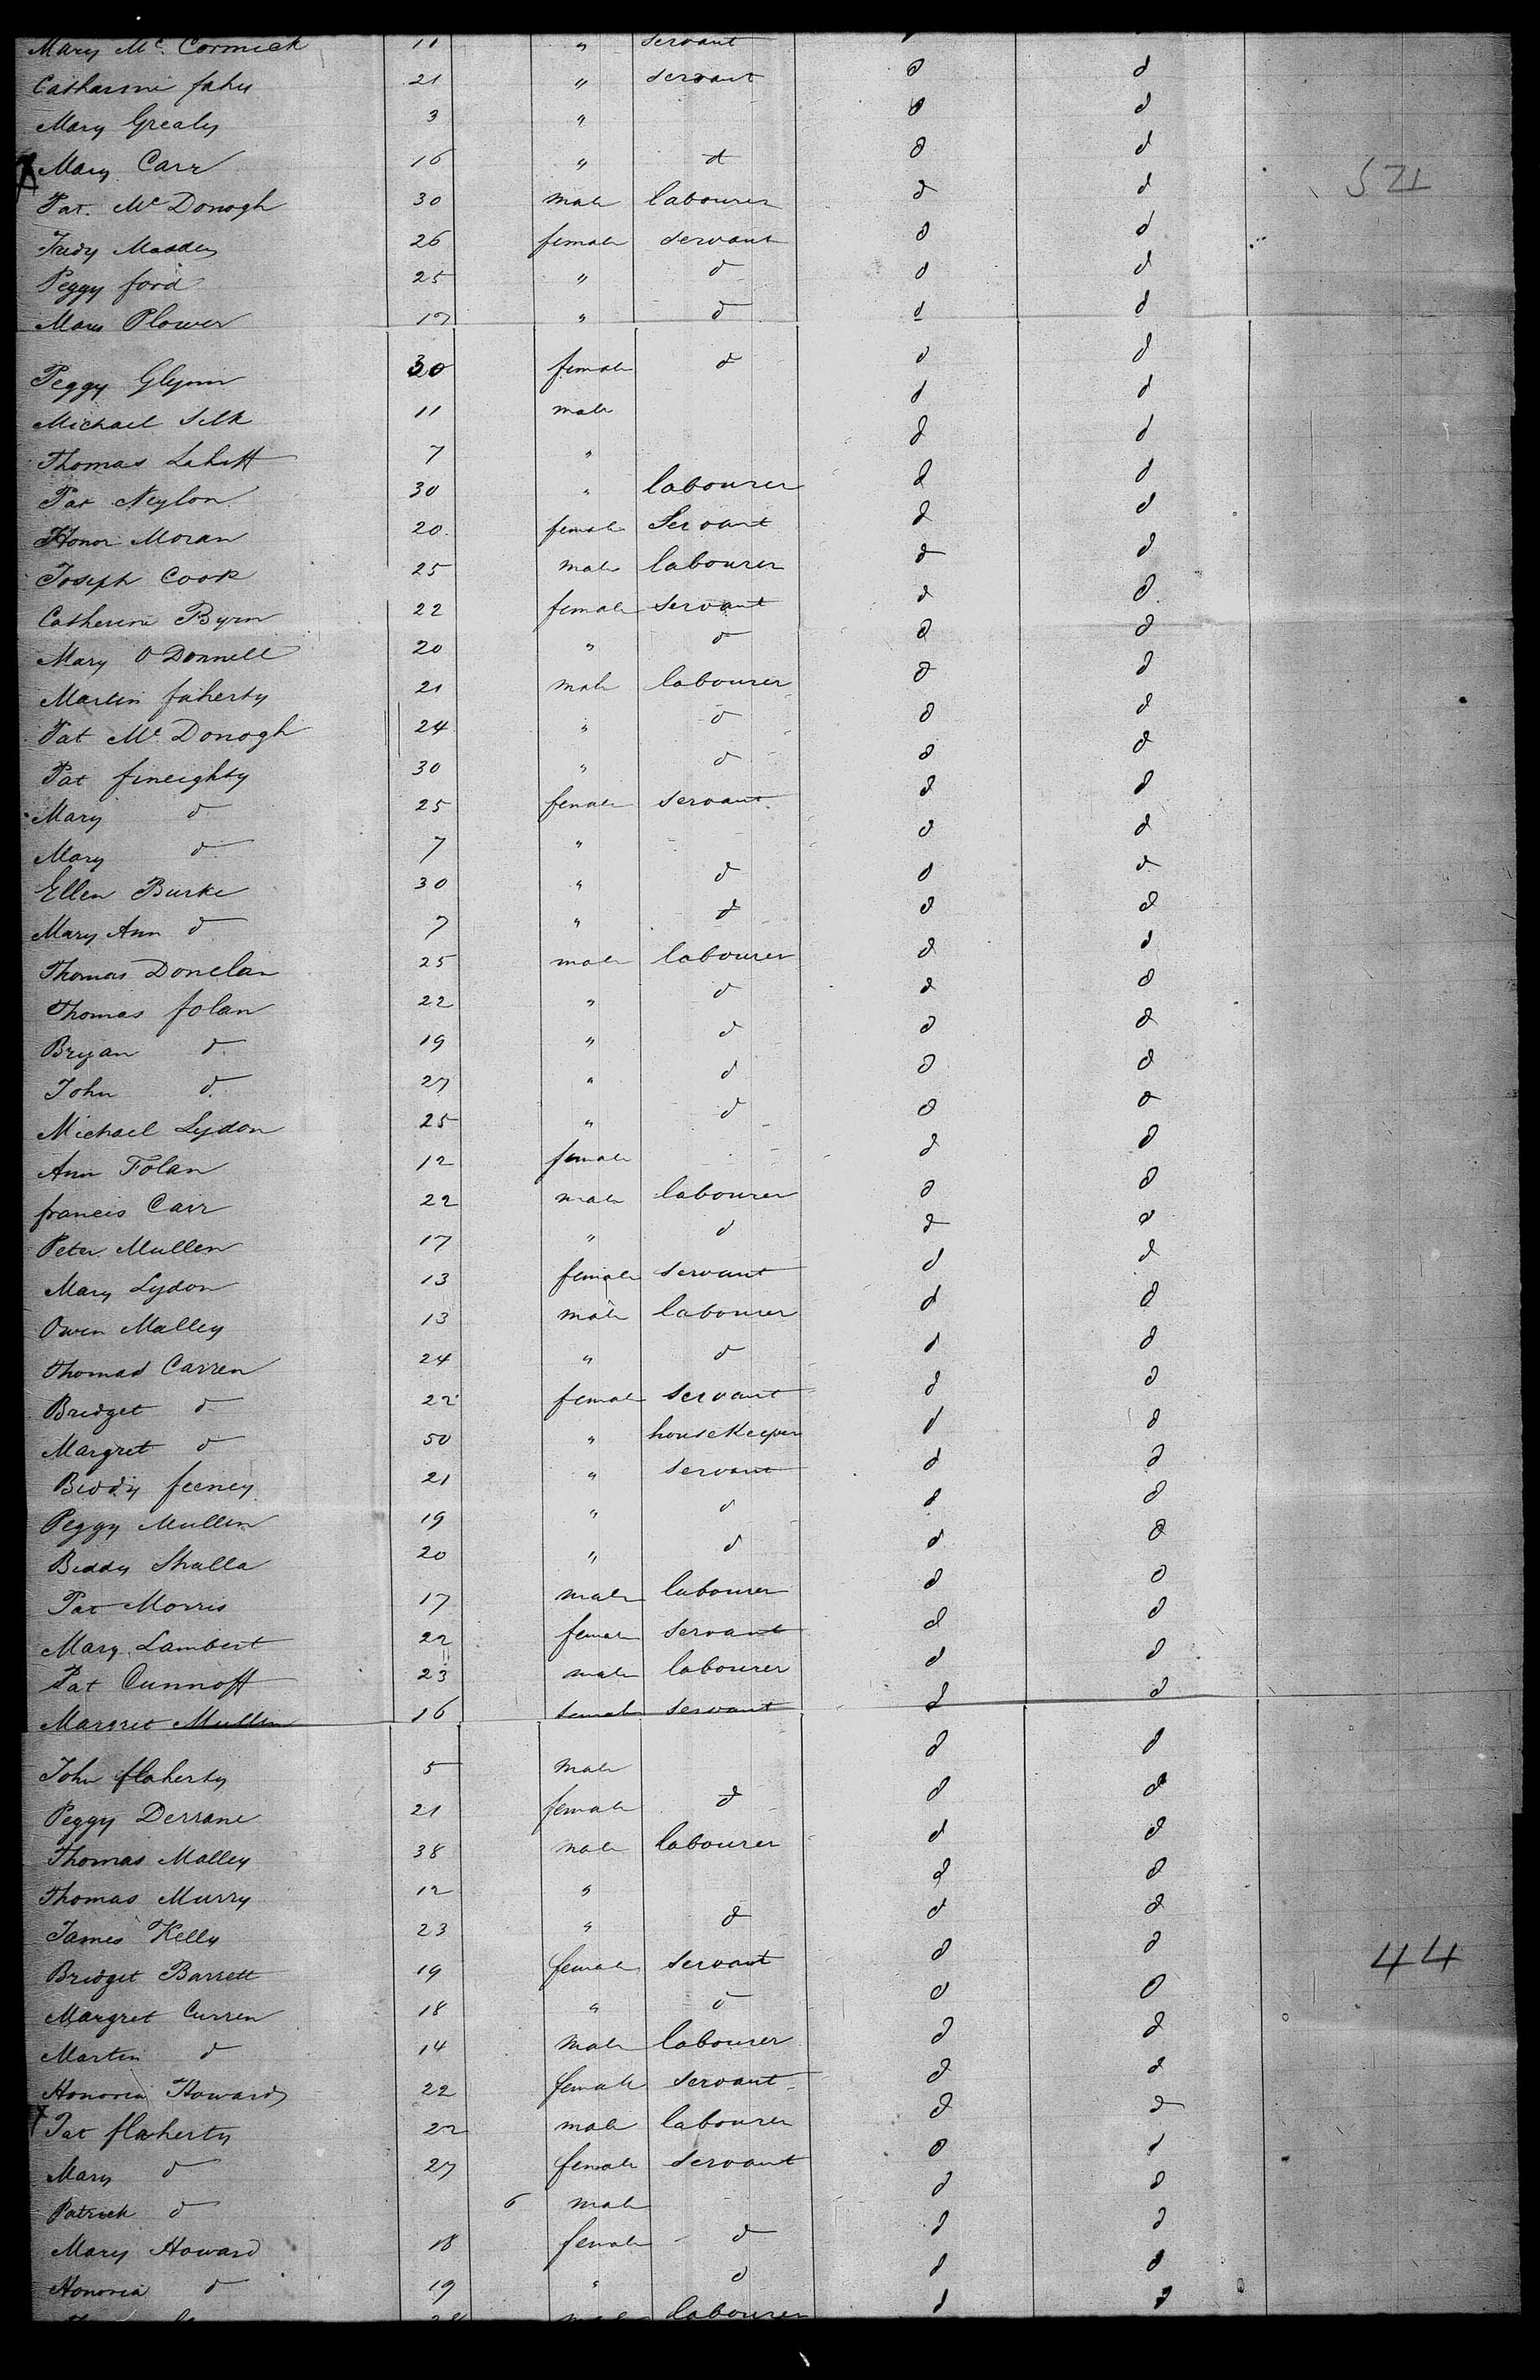 Mary Mc. Cormick 11 " servant
Catharine fahy 21 " servant d d
Mary Grealy 3 " d d
Mary Carr 16 " d d d
521
Pat. Mc Donogh 30 male labourer d d
Madden 26 female servant d d
Peggy ford 25 " d d d
Mary Plower 17 " d d d
Peggy Glynn 30 female d d d
Michael Silk 11 male d d
Thomas Lahiff 7 " d d
Pat Neylon 30 " labourer d d
Honor Moran 20. female Servant d d
Joseph Cook 25 male labourer d d
Catherine Byrn 22 female servant d d
Mary O Donnell 20 " d d d
Martin faherty 21 male labourer d d
Pat Mc. Donogh 24 " d d d
Pat fineighty 30 " d d d
Mary d 25 female servant d d
Mary d 7 " d d
Ellen Burke 30 " d d d
Mary Ann d 7 " d d d
Thomas Donelan 25 male labourer d d
Thomas folan 22 " d d d
Bryan d 19 " d d d
John d. 27 " d d d
Michael Lydon 25 " d d d
Ann Folan 12 female d d
francis Carr 22 male labourer d d
Peter Mullen 17 " d d d
Mary Lydon 13 female servant d d
Owen Malley 13 male labourer d d
Thomas Carren 24 " d d d
Bridget d 22 female servant d d
Margret d 50 " houseKeeper d d
Biddy feeney 21 " servant d d
Peggy Mullen 19 " d d d
Biddy Shalla 20 " d d d
Pat Morris 17 male labourer d d
Mary Lambert 22 female servant d d
Pat Cunnoff 23 male labourer d d
Margret Mullen 16 female servant d d
John flaherty 5 male d d
Peggy Derrane 21 female d d d
Thomas Malley 38 male labourer d d
Thomas Murry 12 " d d
James Kelly 23 " d d d
Bridget Barrett 19 female servant d d
44
Margret Curren 18 " d d d
Martin d 14 male labourer d d
Honoria Howard 22 female servant d d
Pat flaherty 22 male labourer d d
Mary d 27 female servant d d
Patrick d 6 male d d
Mary Howard 18 female d d d
Honoria d 19 " d d d
labourer d d